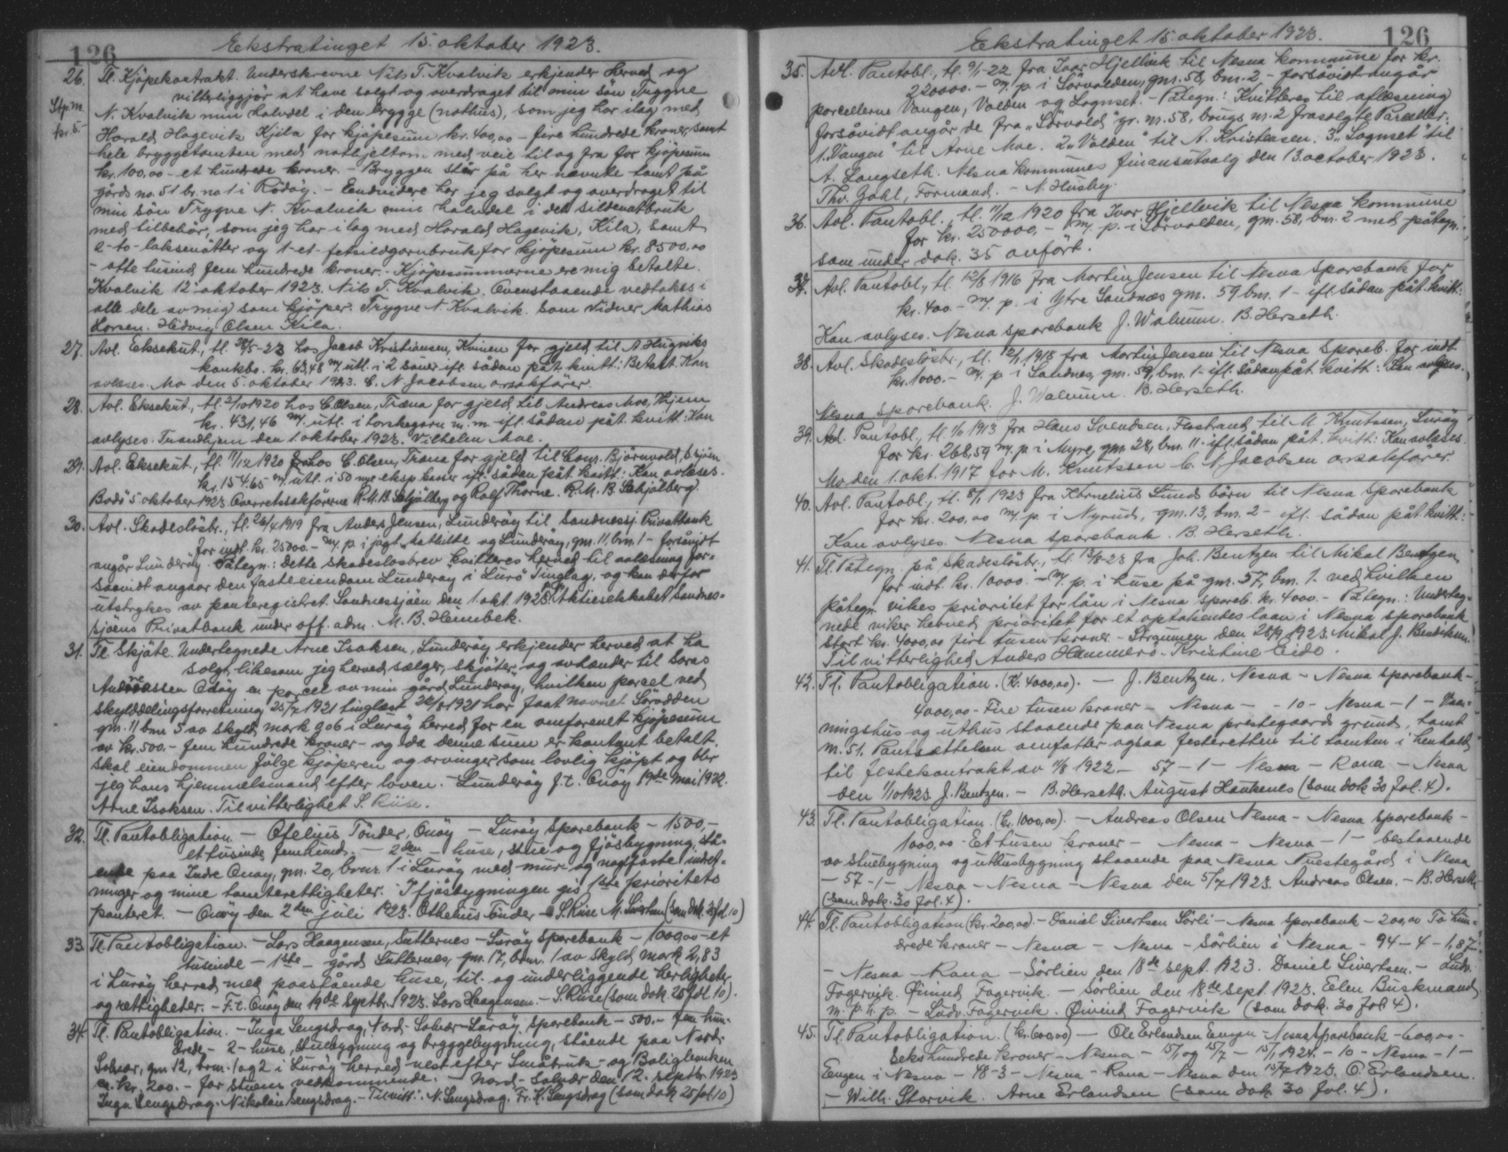 126
Ekstratinget 15. oktober 1923.
26. Tl. Kjöpekontrakt. Underskrevne Nils T. Kvalvik erkjender herved og
Stp. m. vitterliggjör at have solgt og overdraget til min sön Trygve
kr. 5. N. Kvalvik min halvdel i den brygge (nothus), som jeg har ilag med
Harald Hagevik Kjila for kjöpesum kr. 400,00 - fire hundrede kroner samt
hele bryggetomten med nothjeltom med veie til og fra for kjöpesum
kr. 100,00 - et hundrede kroner - Bryggen står på her nævnte tomt på
gårds no. 51 br. no 1 i Rödöy. - Eendvidere har jeg solgt og overdraget til
min sön Trygve N. Kvalvik min halvdel i det sildenotbruk
med tilbehör, som jeg har ilag med Harald Hagevik, Kila, samt
2 - to - laksenötter og 1 - et - fetsildgarnbruk for kjöpesum kr. 8500,00
- otte tusind fem hundrede kroner. - Kjöpesummerne ere mig betalte.
Kvalvik 12 oktober 1923. Nils T. Kvalvik. Ovenstaaende vedtakes i
alle dele av mig som kjöper. Trygve N. Kvalvik. Som Vidner Mathias
Larsen. Hedvig Olsen Kila.
27. Avl. Eksekut., tl. 28/5-23 hos Jacob Kristiansen, Kvinen for gjeld til A. Hugviks
konkbo. kr. 63,48 m/ utl. i 2 sauer ifl. sådan påt. kvitt: Betalt. Kan
avleses. Mo den 5 oktober 1923. C. N. Jacobsen orsakförer.
28. Avl. Eksekut., tl. 2/10 1920 hos C. Olsen, Træna for gjeld til Andreas Moe, Thjem
kr. 431,46 m/ utl. i torskegarn m. m. ifl. sådan påt. kvitt: Kan
avlyses. Trondhjem den 1 oktober 1923. Vilhelm Moe.
29. Avl. Eksekut., tl. 11/12 1920 hos C. Olsen, Træna for gjeld til Conr. Björnvold, Stjöen
kr. 154.65 m/ utl. i 50 nye eksp. kasser ifl. sådan påt. kvitt: Kan avleses.
Bodö 5 oktober 1923 Overretssakförerne R. M. B. Schjölberg og Rolf Thorne. R. M. B. Schjölberg
30. Avl. Skadeslösbr., tl. 26/4 1919 fra Anders Jensen, Lunderöy til Sandnessj. Privatbank
for indt. kr. 25000.- m/ p. i jagt Mathilde og Lunderöy, gm. 11 bm. 1 - forsåvidt
angår Lunderöy. Påtegn: Dette skadeslosbrev kvitteres herved til avlæsning for-
saavidt angaar den fasteiendom Lunderøy i Lurö Tinglag, og kan derfor
utstrykes av panteregistret. Sandnessjöen den 1 okt. 1923. Aktieselskabet Sandnes-
sjöens Privatbank under off. adm. M. B. Hennebek.
31. Tl. Skjöte. Underlegnede Arne Isaksen, Lunderöy erkjender herved at ha
solgt, likesom jeg herved sælger, skjöter og avhænder til Soras
Andreassen Onöy en parcel av min gård Lunderöy, hvilken parcel ved
skylddelingsforretning 25/7 1921 tinglæst 20/8 1921 har faat navnet Söródden
gm. 11 bm. 5 av skyld mark 906 i Luröy herred for en omforenet kjöpesum
av kr. 500.- fem hundrede kroner - og da denne sum er kontant betalt
skal eiendommen fölge kjöperen og arvinger som lovlig kjöpt og blir
jeg hans hjemmelsmand efter loven. - Lunderöy f. t. Onöy 19de mai 1922.
Arne Isaksen. Til vitterlighet S. Riise.
32. Tl. Pantobligation - Ofelius Tönder, Onöy - Luröy Sparebank - 1500,-
ettusinde femhund. - 2den - huse, stue og fjösbygning, stå-
ende paa Indre Onøy, gm. 20, brnr. 1 i Luröy med mur og nagelfaste indret-
ninger og mine tomteretttigheter. I fjösbygningen gis 1ste prioritets
panteret. - Onøy den 2den juli 1923. Othelius Tönder - S. Riise M. Sivertsen (som dok. 25 fol. 10)
33. Tl. Pantobligation. - Lars Haagensen, Sutternes - Luröy Sparebank - 1000,00 - et
tusinde - 1ste - gård Sutternes, gm. 17, bnm. 1 av skyld mark 2,83
i Luröy herred med paastående huse, til- og underliggende herligheter
og rettigheter. - F. t. Onøy den 19de Septbr. 1923. Lars Haagensen. - S. Riise (som dok. 25 fol. 10).
34. Tl. Pantobligation. - Inga Lengsdrag, Nord-Solvær - Luröy Sparebank - 500.- fem hun-
drede - 2 - huse, stuebygning og bryggebygning, stående paa Nord-
Solvær, gm. 12, bnm. 1 og 2 i Luröy herred næst efter Småbruk- og Boligbanken
kr. 200.- for stuens vedkommende. - Nord-Solvær den 12. septbr. 1923
Inga Lengsdrag. Nikolai Lengsdrag. - Til vitt: N. Lengsdrag. Fr. K. Lengsdrag (som dok. 25 fol. 10)
126
Ekstratinget 15. oktober 1923.
35. Avl. Pantobl., tl. 9/1-22 fra Ivar Hjellvik til Nesna kommune for kr.
220000.- m/ p. i Sörvolden, gm. 58, bm. 2 - forsåvidt angår
porcellerne Vangen, Volden og Logmset. - Påtegn: Kvitteres til aflæsning
forsåvidt angår de fra "Sörvold" gr. nr. 58, brugs nr. 2 frasolgte Parceller:
1. "Vangen" til Arne Moe. 2. "Volden" til A. Kristensen. 3. "Logmset" til
A. Langseth. Nesna kommunes finansutvalg den 13. october 1923.
Thv. Dahl, Formand. - N. Husby.
36. Avl. Pantobl., tl. 11/12 1920 fra Ivar Hjellevik til Nesna kommune
for kr. 250000,- m/ p. i Sörvolden, gm. 58, bm. 2 med påtegn.
som under dok. 35 anfört.
37. Avl. Pantobl., tl. 12/8 1916 fra Martin Jensen til Nesna Sparebank for
kr. 400.- m/ p. i Ytre Sandnæs gm. 59, bm. 1 - ifl. sådan påt. kvitt:
Kan avlyses. Nesna Sparebank J. Walnum. B. Herseth.
38. Avl. Skadeslösbr., tl. 12/1 1918 fra Martin Jensen til Nesna Spareb. for indt.
kr. 1000.- m/ p. i Sandnes, gm. 59, bm. 1 - ifl. sådan påt. kvitt: Kan avlyses.
Nesna Sparebank. J. Walnum. B. Herseth.
39. Avl. Pantobl., tl. 1/6 1913 fra Hans Svendsen, Fastrand til M. Knutssen, Luröy
for kr. 268,59 m/ p. i Myre, gm. 28, bm. 11 - ifl. sådan påt. kvitt: Kan avleses.
Mo den 1. okt. 1917 for M. Knutssen C. N. Jacobsen orsakförer
40. Avl. Pantobl., tl. 8/1 1923 fra Kornelius Lunds börn til Nesna Sparebank
for kr. 200,00 m/ p. i Nyrud, gm. 13, bm. 2 - ifl. sådan påt. kvitt:
Kan avlyses. Nesna Sparebank. B. Herseth.
41. Tl. Påtegn. på skadeslösbr., tl. 13/8-23 fra Joh. Bentzen til Mikal Bentzen
for indt. kr. 10000.- m/ p. i huse på gm. 57, bm. 1. ved hvilken
påtegn. vikes prioritet for lån i Nesna Spareb. kr. 4000.- Påtegn.: Underteg-
nede viker herved prioritet for et optakendes laan i Nesna Sparebank
stort kr. 4000,00 fire tusen kroner - Strømmen den 28/9 1923 Mikal J. Bendiksen.
Til vitterlighed, Anders Hammerö - Kristine Eido.
42. Tl. Pantobligation. (Kr. 4000,00). - J. Bentzen. Nesna - Nesna Sparebank -
4000,00 - Fire tusen kroner - Nesna - - 10 - Nesna - 1 - Vaa-
ningshus og uthus staaende paa Nesna prestegaards grund, tomt
nr. 51. Pantsættelsen omfatter ogsaa festeretten til tomten i henhold
til festekontrakt av 11/8 1922 - 57 - 1 - Nesna - Rana - Nesna
den 1/10 1923 J. Bentzen. - B. Herseth. August Hankenes (som dok. 30 fol. 4).
43. Tl. Pantobligation. (kr. 1000,00). - Andreas Olsen Nesna - Nesna Sparebank -
1000,00 - Et tusen kroner - Nesna - Nesna - 1 - bestaaende
av stuebygning og uthusbygning staaende paa Nesna Nuestegård i Nesna
- 57 - 1 - Nesna - Nesna - Nesna den 5/7 1923. Andreas Olsen. - B. Herseth
(som dok. 30 fol. 4).
44. Tl. Pantobligation (kr. 200,00) - Daniel Sivertsen Sörli - Nesna Sparebank - 200,00 To hun-
drede kroner - Nesna - Nesna - Sörlien i Nesna - 94 - 4 - 1,87
- Nesna - Rana - Sörlien den 18de sept. 1923. Daniel Sivertsen. - Ludv.
Fagervik. Öivind Fagervik. - Sörlien den 18de sept 1923. Elen Buskmand
m. p. h. p. - Ludv. Fagervik. Öivind Fagervik (som dok. 30 fol. 4).
45. Tl. Pantobligation. (kr. 600,00) - Ole Erlandsen Engen - Nesna Sparebank - 600,00 -
Sekshundrede kroner - Nesna - 15/1 og 15/7 - 15/1 1924. - 10 - Nesna - 1 -
Engen i Nesna - 48 - 3 - Nesna - Rana - Nesna den 13/7 1923. O. Erlandsen.
- Wilh. Storvik. Arne Erlandsen (som dok. 30 fol. 4).